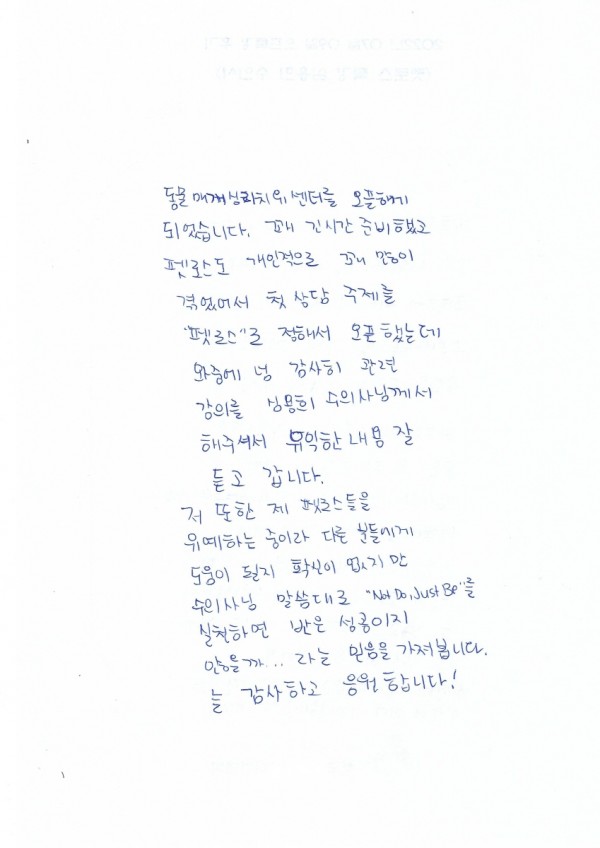 동물매개심리치유센터를 오픈하게
되었습니다. 꽤 긴시간 준비했고
펫로스도 개인적으로 꽤 많이
겪었어서 첫 상담 주제를
"펫로스"로 정해서 오픈했는데
와중에 넘 감사히 관련
강의를 심용희 수의사님께서
해주셔서 유익한 내용 잘
듣고 갑니다.
저 또한 제 펫로스들을
유예하는 중이라 다른 분들에게
도움이 될지 확신이 없지만
수의사님 말씀대로 "Not Do, Just Be"를
실천하면 반은 성공이지
않을까... 라는 믿음을 가져봅니다.
늘 감사하고 응원합니다!